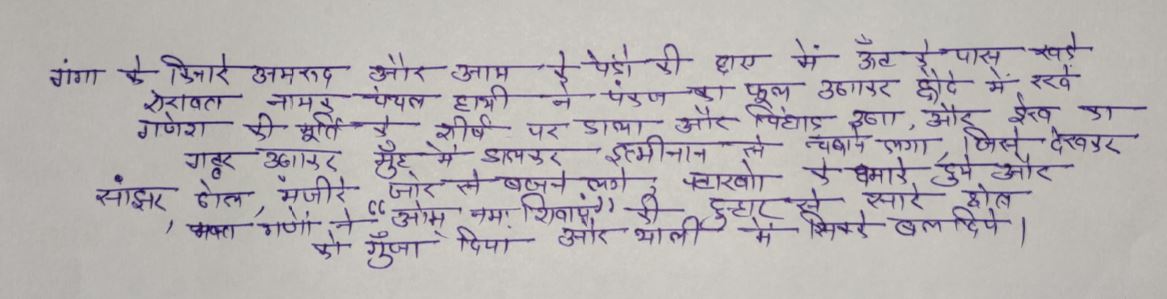 गंगा के किनारे अमरूद और आम के पेड़ो की छाए में ऊँट के पास खड़े
ऐरावत नामक चंचल हाथी ने पंकज का फूल उठाकर हौदे में रखे
गणेश की मूर्ति के शीर्ष पर डाला और चिंघाड़ उठा, और ईख का
गट्ठर उठाकर मुँह में डालकर इत्मीनान से चबाने लगा, जिसे देखकर
सांझर ढोल, मंजीरे जोर से बजने लगे, पटाखो के धमाके हुये और
, भक्त गणों ने “ओम् नमः शिवाय” की हुहार से सारे होल
को गुँजा दिया और थाली में सिक्के डाल दिये।